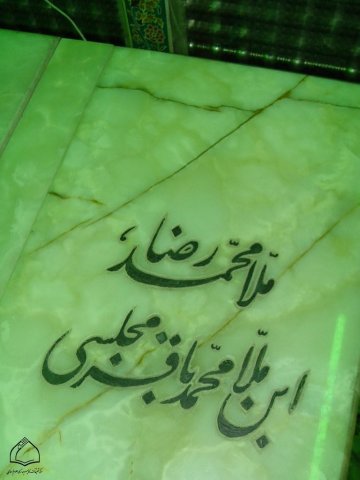 ملّا محمّد رضا،
ابن ملّا محمّد باقر مجلسی